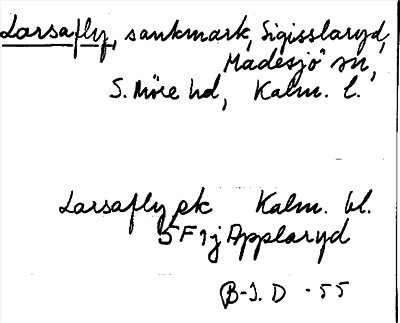 Larsafly, sankmark, Sigisslaryd,
Madesjö sn,
S. Möre hd, Kalm. l.
Larsafly ek Kalm. bl.
5F 1j Applaryd
B-I. D -55